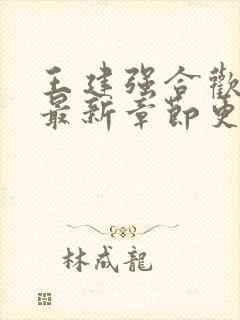 王建强合歡
最新章節更
林成龍